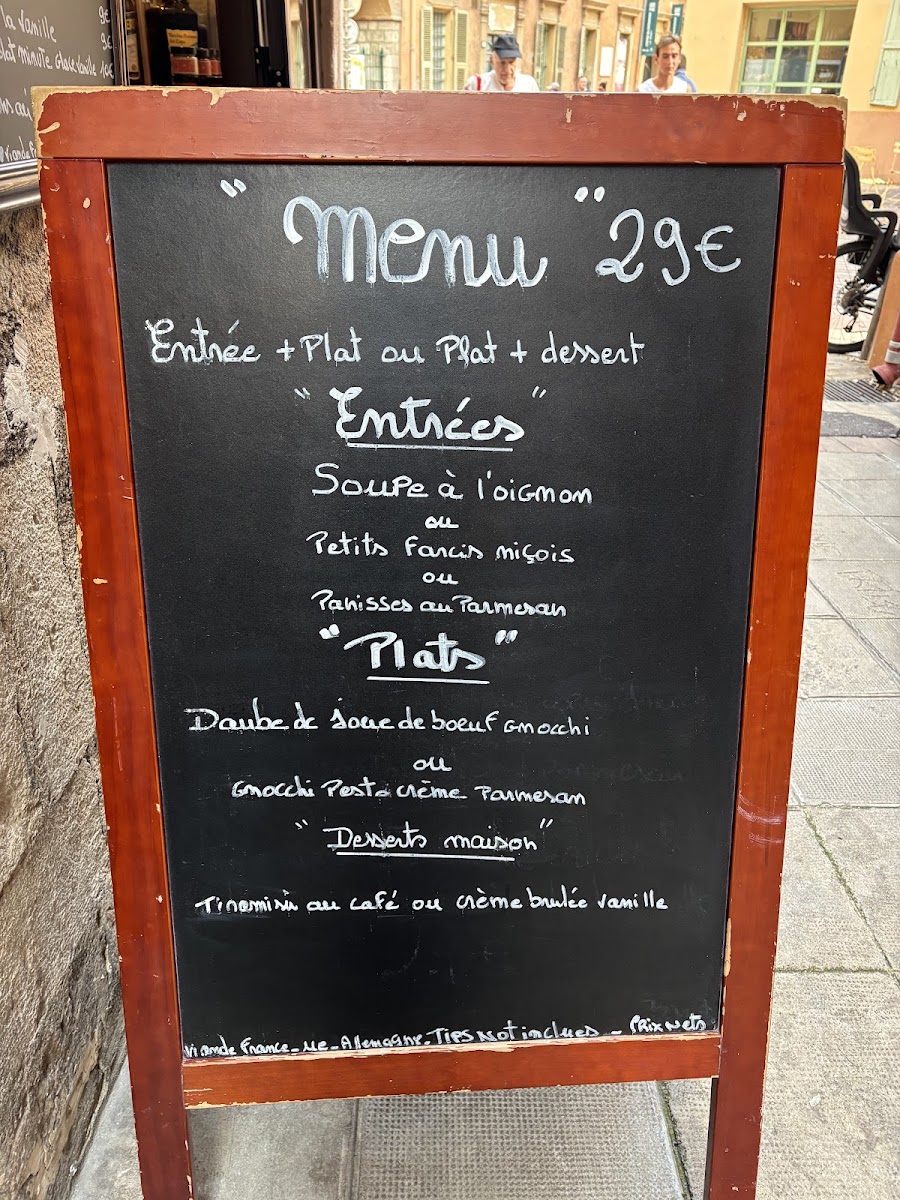 la vanille 9€
9€
" Menu " 29€
Entrée + Plat ou Plat + dessert
" Entrées "
Soupe à l'oignon
ou
Petits farcis niçois
ou
Panisses au Parmesan
" Plats "
Daube de joue de boeuf Gnocchi
ou
Gnocchi Pesto crème Parmesan
" Desserts maison "
Tiramisù au café ou crème brulée vanille
Viande France - UE - Allemagne - Tips Not inclues - Prix Nets